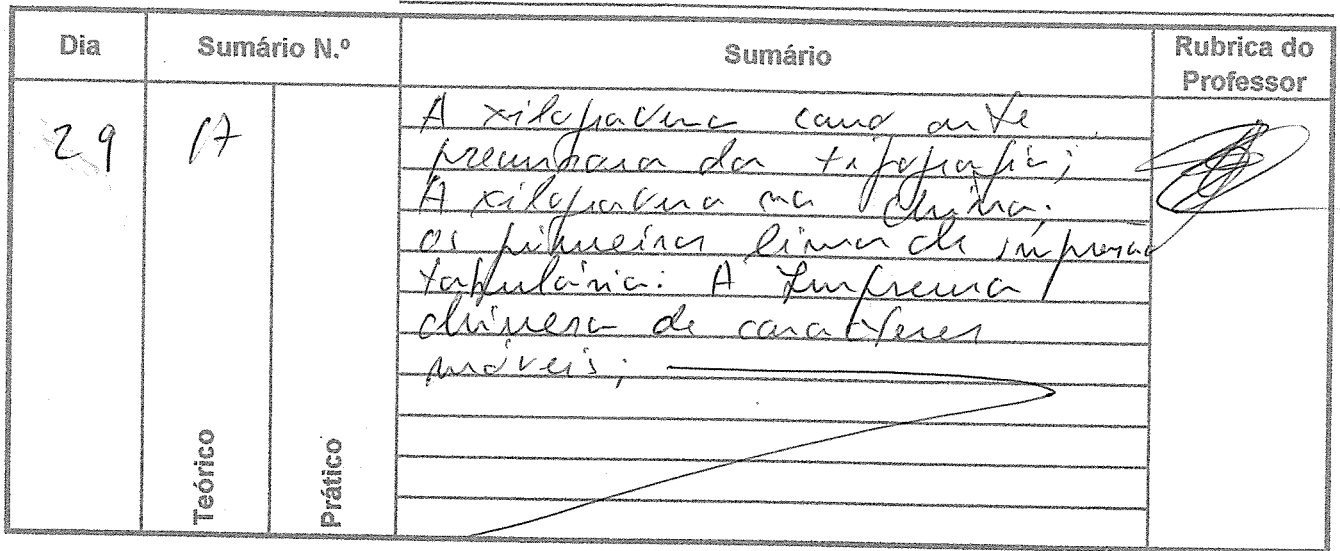 Dia Sumário N.º Sumário Rubrica do Professor
29 17 A xilogravura como arte
precursora da tipografia;
A xilogravura na China;
os primeiros livros de impressão
tabulária: A Imprensa
chinesa de caracteres
móveis;
Teórico Prático